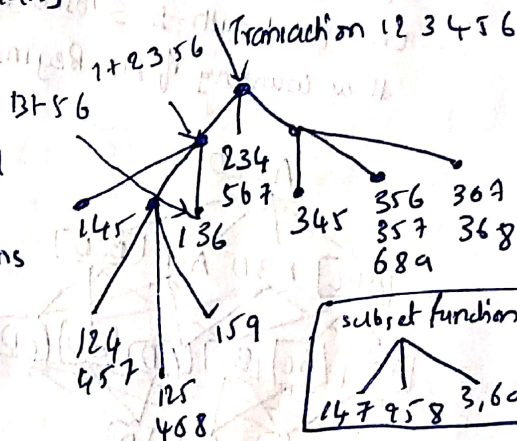 Transaction 1 2 3 4 5 6
1+2356
13+56
234
567
145
136
345
356
357
689
367
368
ns
124
457
125
458
159
subset function
147
258
3,6